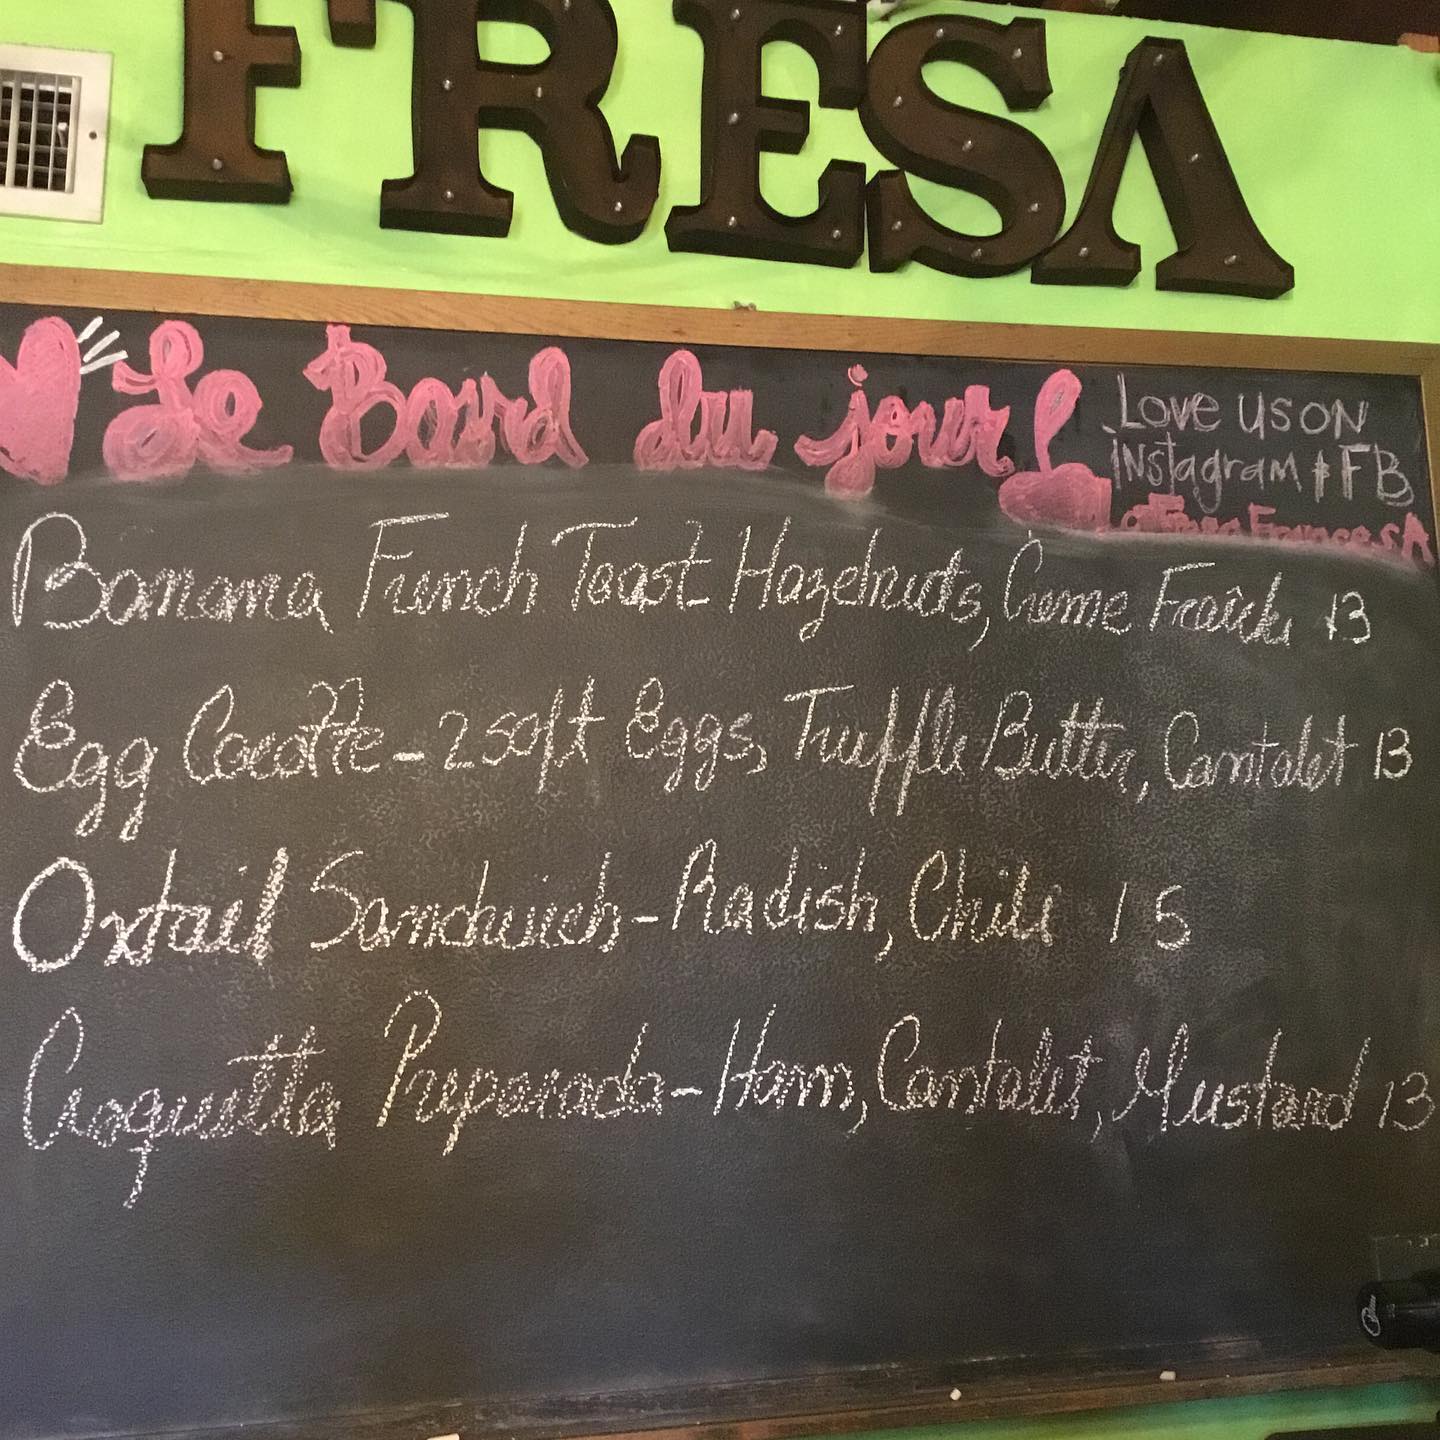 FRESA
Le Board du jour!
Love us on
INstagram & FB
@FresaFrancesA
Banana French Toast Hazelnuts, Creme Fraîche 13
Egg Cocotte - 2 soft Eggs, Truffle Butter, Cantalet 13
Oxtail Sandwich - Radish, Chile 15
Croquetta Preparada - Ham, Cantalet, Mustard 13